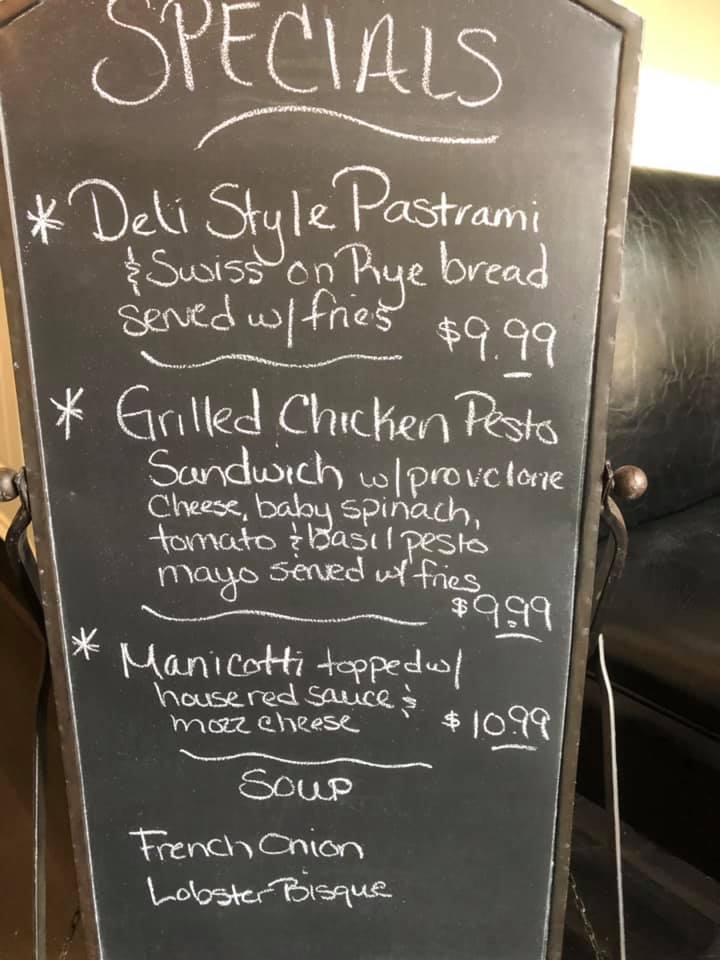 SPECIALS
* Deli Style Pastrami
& Swiss on Rye bread
served w/ fries $9.99
* Grilled Chicken Pesto
Sandwich w/ provclone
Cheese, baby spinach,
tomato & basil pesto
mayo served w/ fries
$9.99
* Manicotti topped w/
house red sauce &
mozz cheese $10.99
Soup
French Onion
Lobster Bisque